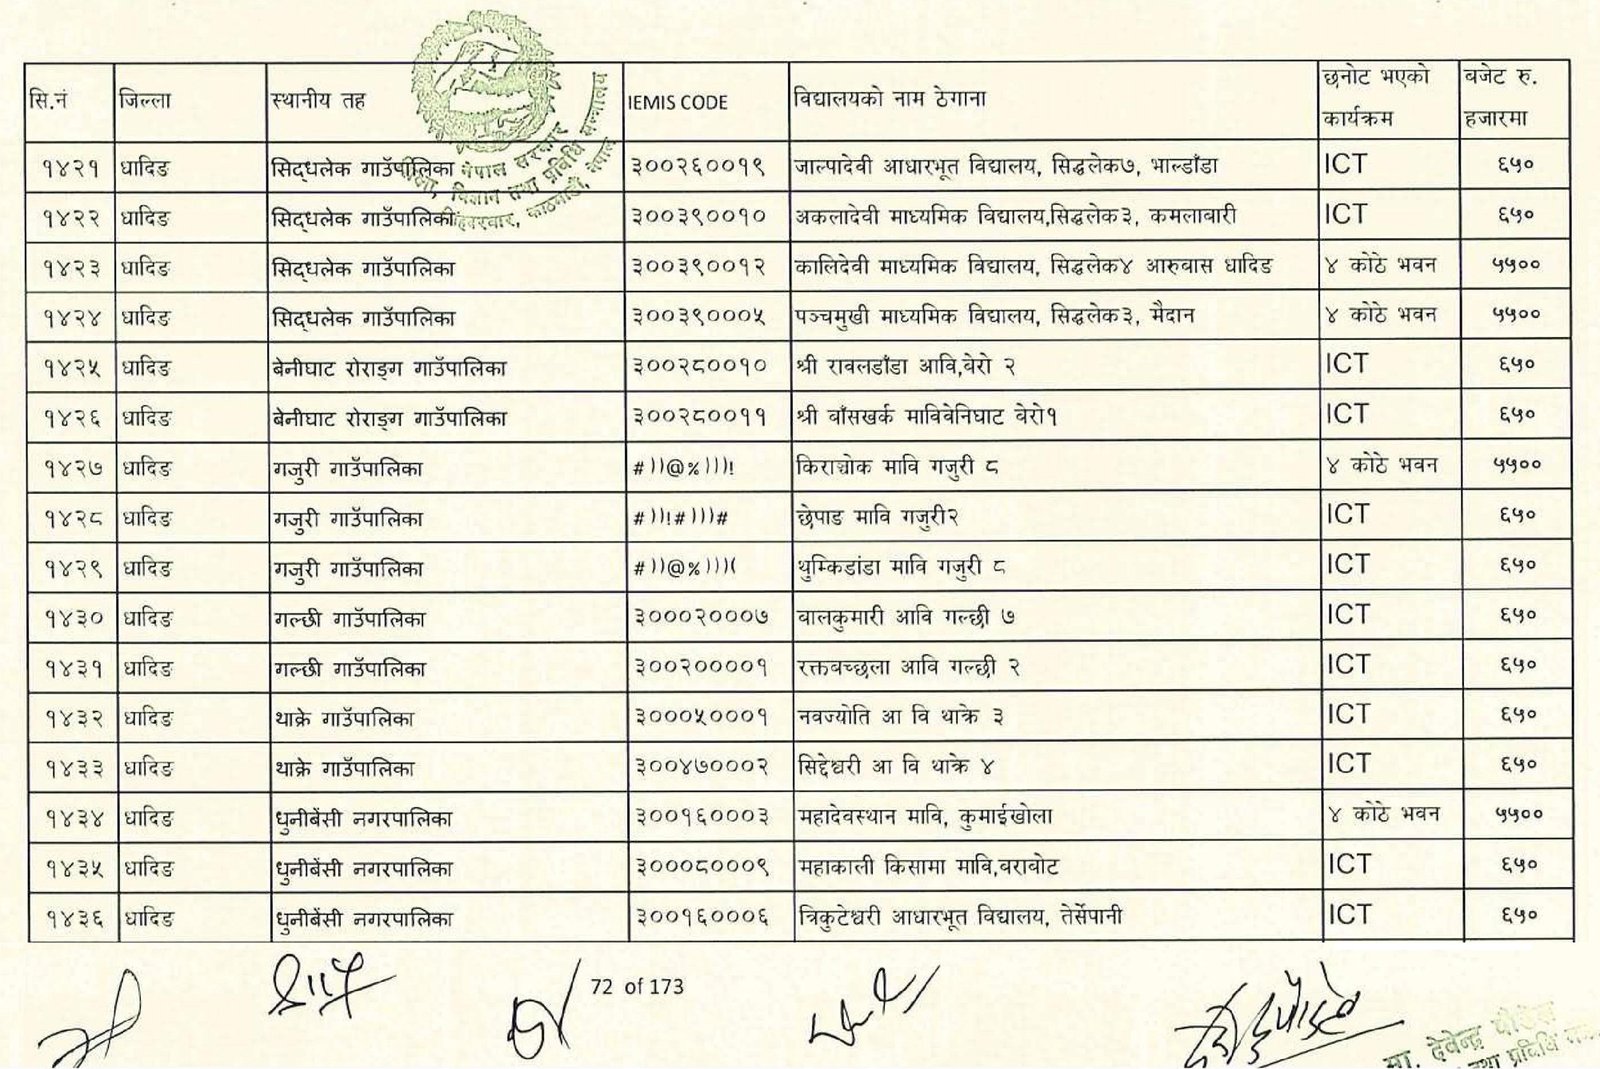 सि.नं जिल्ला स्थानीय तह IEMIS CODE विद्यालयको नाम ठेगाना छनोट भएको कार्यक्रम बजेट रु. हजारमा
१४२१ धादिङ सिद्धलेक गाउँपालिका ३००२६००१९ जाल्पादेवी आधारभूत विद्यालय, सिद्धलेक७, भाल्डाँडा ICT ६५०
१४२२ धादिङ सिद्धलेक गाउँपालिका ३००३९००१० अकलादेवी माध्यमिक विद्यालय,सिद्धलेक३, कमलाबारी ICT ६५०
१४२३ धादिङ सिद्धलेक गाउँपालिका ३००३९००१२ कालिदेवी माध्यमिक विद्यालय, सिद्धलेक४ आरुबास धादिङ ४ कोठे भवन ५५००
१४२४ धादिङ सिद्धलेक गाउँपालिका ३००३९०००५ पञ्चमुखी माध्यमिक विद्यालय, सिद्धलेक३, मैदान ४ कोठे भवन ५५००
१४२५ धादिङ बेनीघाट रोराङ्ग गाउँपालिका ३००२८००१० श्री रावलडाँडा आवि,बेरो २ ICT ६५०
१४२६ धादिङ बेनीघाट रोराङ्ग गाउँपालिका ३००२८००११ श्री बाँसखर्क माविबेनिघाट बेरो१ ICT ६५०
१४२७ धादिङ गजुरी गाउँपालिका #))@%)))! किराञ्चोक मावि गजुरी ८ ४ कोठे भवन ५५००
१४२८ धादिङ गजुरी गाउँपालिका #))!#)))# छेपाङ मावि गजुरी२ ICT ६५०
१४२९ धादिङ गजुरी गाउँपालिका #))@%)))( थुम्किडांडा मावि गजुरी ८ ICT ६५०
१४३० धादिङ गल्छी गाउँपालिका ३०००२०००७ बालकुमारी आवि गल्छी ७ ICT ६५०
१४३१ धादिङ गल्छी गाउँपालिका ३००२००००१ रक्तबच्छला आवि गल्छी २ ICT ६५०
१४३२ धादिङ थाक्रे गाउँपालिका ३०००५०००१ नवज्योति आ वि थाक्रे ३ ICT ६५०
१४३३ धादिङ थाक्रे गाउँपालिका ३००४७०००२ सिद्देश्वरी आ वि थाक्रे ४ ICT ६५०
१४३४ धादिङ धुनीबेंसी नगरपालिका ३००१६०००३ महादेवस्थान मावि, कुमाईखोला ४ कोठे भवन ५५००
१४३५ धादिङ धुनीबेंसी नगरपालिका ३०००८०००९ महाकाली किसामा मावि,बराबोट ICT ६५०
१४३६ धादिङ धुनीबेंसी नगरपालिका ३००१६०००६ त्रिकुटेश्वरी आधारभूत विद्यालय, तेर्सेपानी ICT ६५०
नेपाल सरकार
विज्ञान तथा प्रविधि मन्त्रालय
काठमाडौं, नेपाल
72 of 173
मा. देवेन्द्र पौडेल
तथा प्रविधि